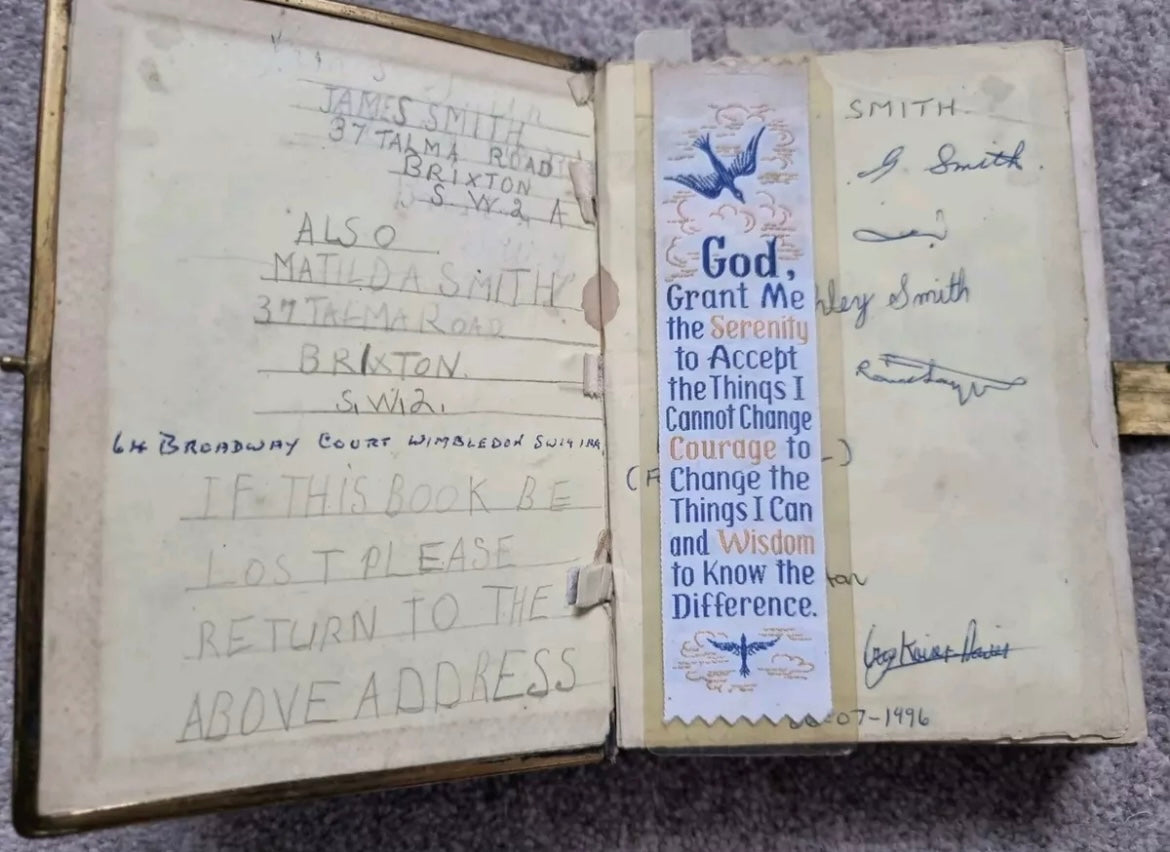 JAMES SMITH
37 TALMA ROAD
BRIXTON
S. W. 2 A
ALSO
MATILDA SMITH
37 TALMA ROAD
BRIXTON.
S. W. 2.
BROADWAY COURT WIMBLEDON
IF THIS BOOK BE
LOST PLEASE
RETURN TO THE
ABOVE ADDRESS
God,
Grant Me
the Serenity
to Accept
the Things I
Cannot Change
Courage to
Change the
Things I Can
and Wisdom
to Know the
Difference.
SMITH.
G. Smith.
hley Smith
07-1996